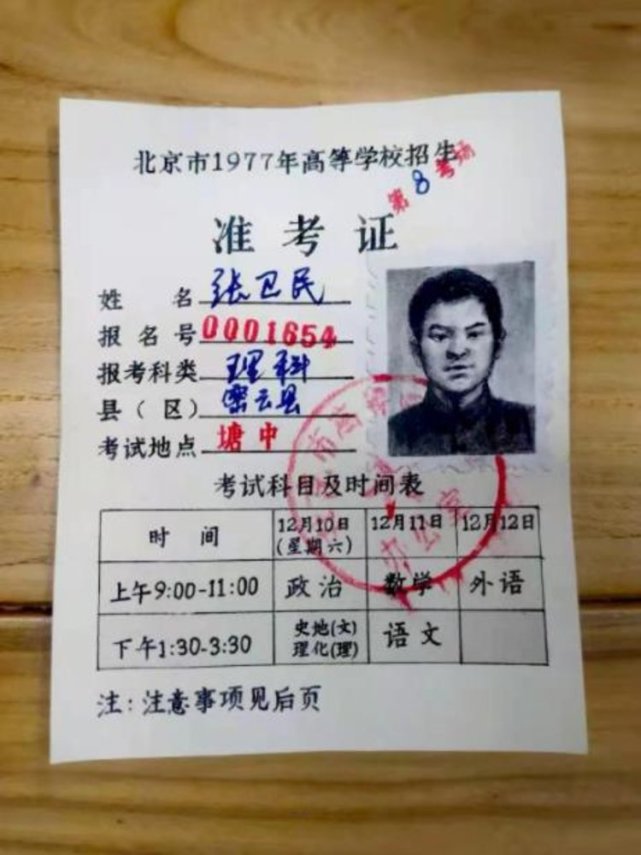 北京市1977年高等学校招生
第8考场
准考证
姓 名 张卫民
报 名 号 0001654
报考科类 理科
县（区） 密云县
考试地点 塘中
考试科目及时间表
时 间 12月10日(星期六) 12月11日 12月12日
上午9:00-11:00 政治 数学 外语
下午1:30-3:30 史地(文)理化(理) 语文
注：注意事项见后页
办公室